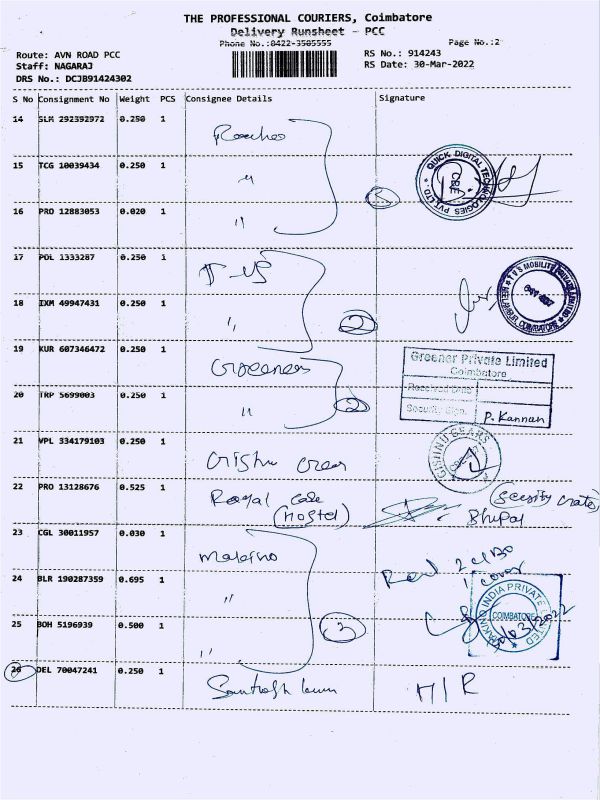 THE PROFESSIONAL COURIERS, Coimbatore
Delivery Runsheet - PCC
Phone No.:0422-3505555
Page No.:2
Route: AVN ROAD PCC
RS No.: 914243
Staff: NAGARAJ
RS Date: 30-Mar-2022
DRS No.: DCJB91424302
S No Consignment No Weight PCS Consignee Details Signature
14 SLM 292392972 0.250 1
15 TCG 10039434 0.250 1 "
QUICK DIGITAL TECHNOLOGIES PVT.LTD.
16 PRO 12883053 0.020 1 "
3
17 POL 1333287 0.250 1
TVS MOBILITY PRIVATE LIMITED
NEELAMBUR, COIMBATORE
18 IXM 49947431 0.250 1 "
2
19 KUR 607346472 0.250 1 Greeners
Greener Private Limited
Coimbatore
Received Date
20 TRP 5699003 0.250 1 "
2
Security Sign. P. Kannan
21 VPL 334179103 0.250 1
GEARS
22 PRO 13128676 0.525 1 Royal Care
(Hostel)
23 CGL 30011957 0.030 1 Makino
24 BLR 190287359 0.695 1 "
INDIA PRIVATE LIMITED
COIMBATORE
25 BOH 5196939 0.500 1 "
3
26 DEL 70047241 0.250 1